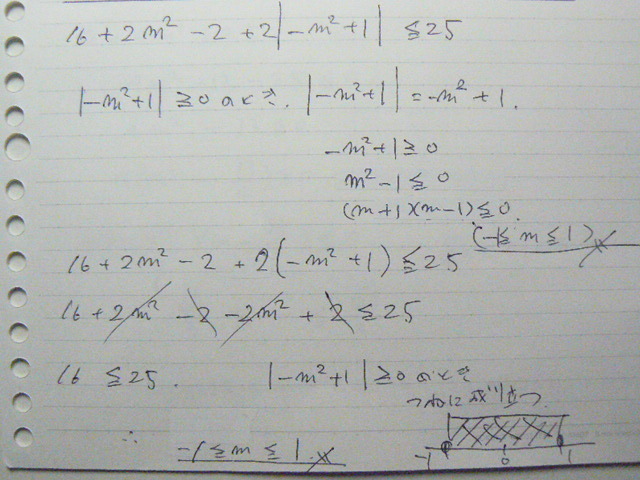 16 + 2m² - 2 + 2|-m²+1| ≦ 25
|-m²+1| ≧ 0 のとき. |-m²+1| = -m²+1.
-m²+1 ≧ 0
m²-1 ≦ 0
(m+1)(m-1) ≦ 0.
(-1 ≦ m ≦ 1)
16 + 2m² - 2 + 2(-m²+1) ≦ 25
16 + 2m² - 2 - 2m² + 2 ≦ 25
16 ≦ 25. |-m²+1| ≧ 0 のとき
つねに成り立つ
∴ -1 ≦ m ≦ 1
-1 0 1